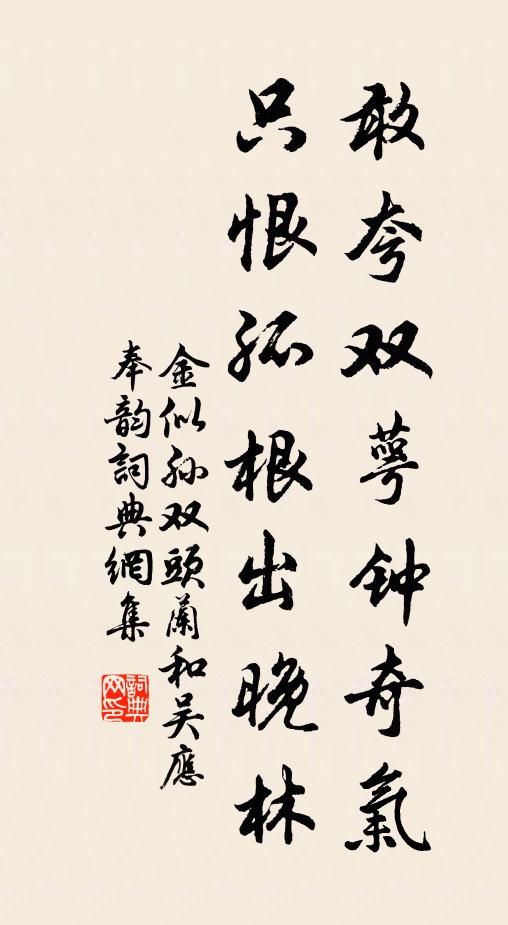 敢夸双萼钟奇氣
只恨孤根出晚林
金似孙双頭蘭和吴應
奉韵詞典網集
詞典网印